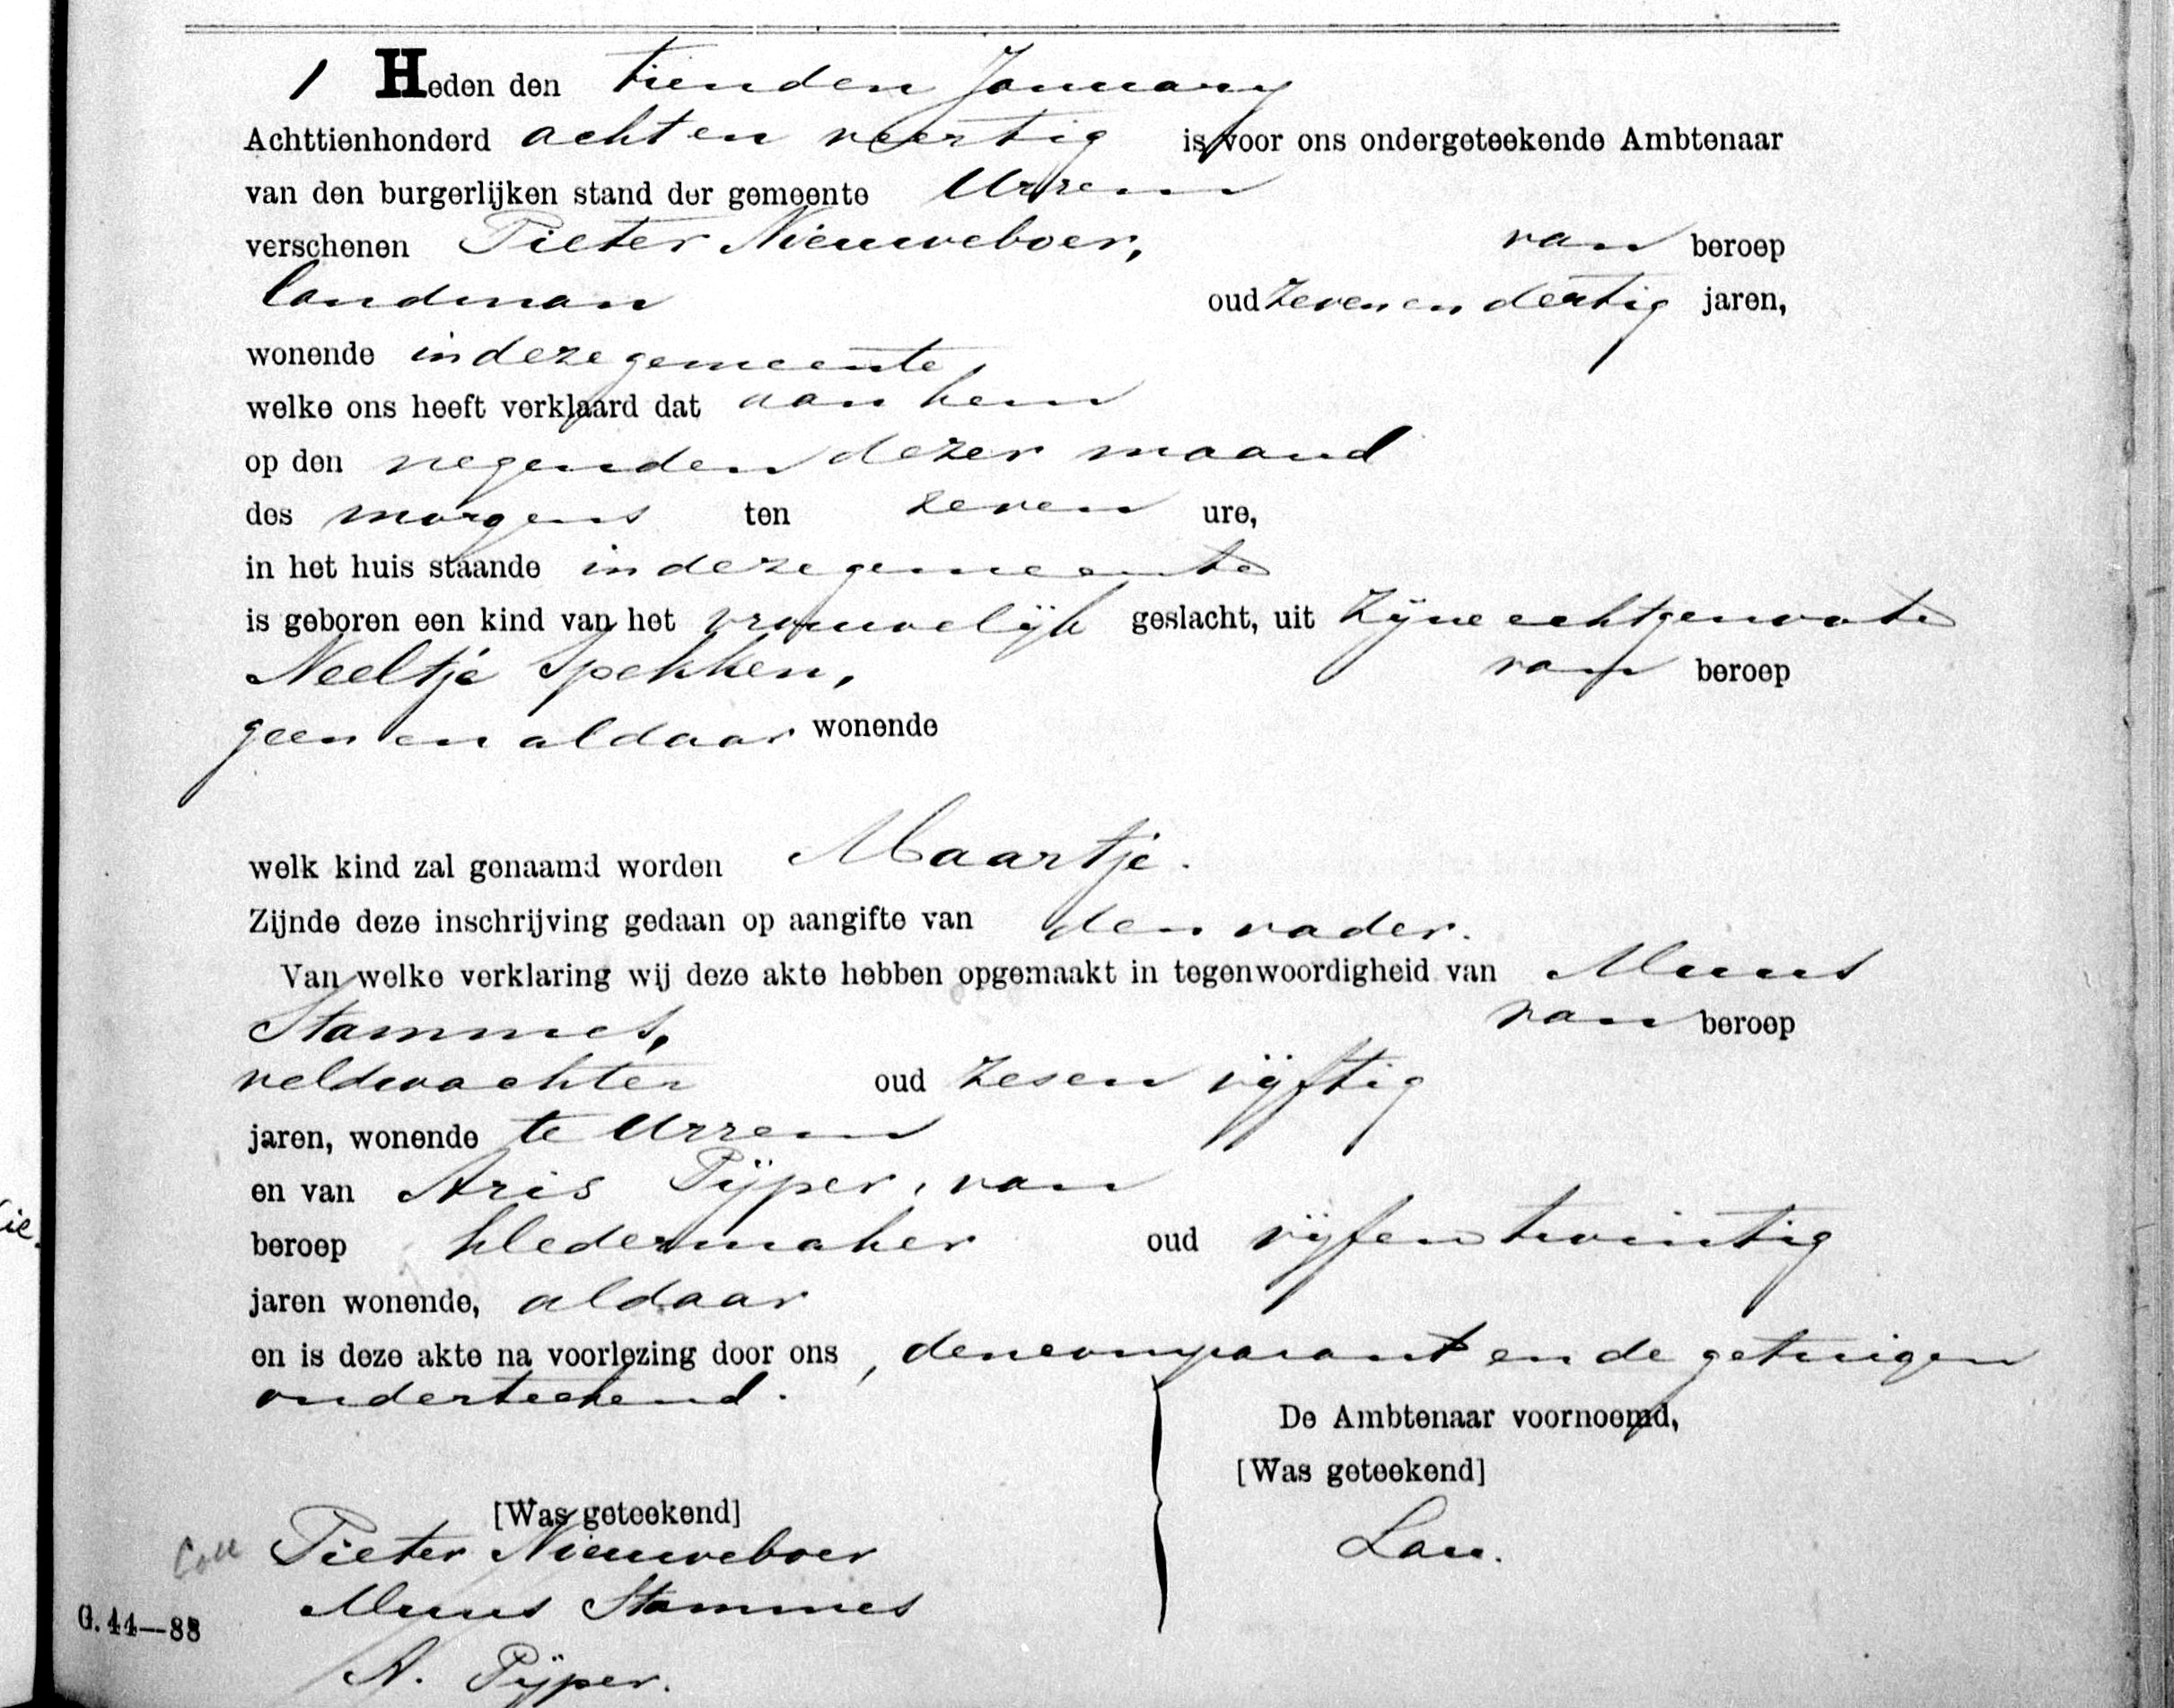 1 Heden den tienden January
Achttienhonderd acht en veertig is voor ons ondergeteekende Ambtenaar
van den burgerlijken stand der gemeente Ursem
verschenen Pieter Nieuweboer, van beroep
landman oud zeven en dertig jaren,
wonende in deze gemeente
welke ons heeft verklaard dat aan hem
op den negenden dezer maand
des morgens ten zeven ure,
in het huis staande in deze gemeente
is geboren een kind van het vrouwelijk geslacht, uit zijne echtgenoote
Neeltje Spekken, van beroep
geen en aldaar wonende
welk kind zal genaamd worden Maartje.
Zijnde deze inschrijving gedaan op aangifte van den vader.
Van welke verklaring wij deze akte hebben opgemaakt in tegenwoordigheid van Muus
Stammes, van beroep
veldwachter oud zes en vijftig
jaren, wonende te Ursem
en van Aris Pijper, van
beroep kledermaker oud vijf en twintig
jaren wonende, aldaar
en is deze akte na voorlezing door ons, den comparant en de getuigen
onderteekend.
De Ambtenaar voornoemd,
[Was geteekend]
Lau.
[Was geteekend]
Coll Pieter Nieuweboer
Muus Stammes
G. 44—88
A. Pijper.